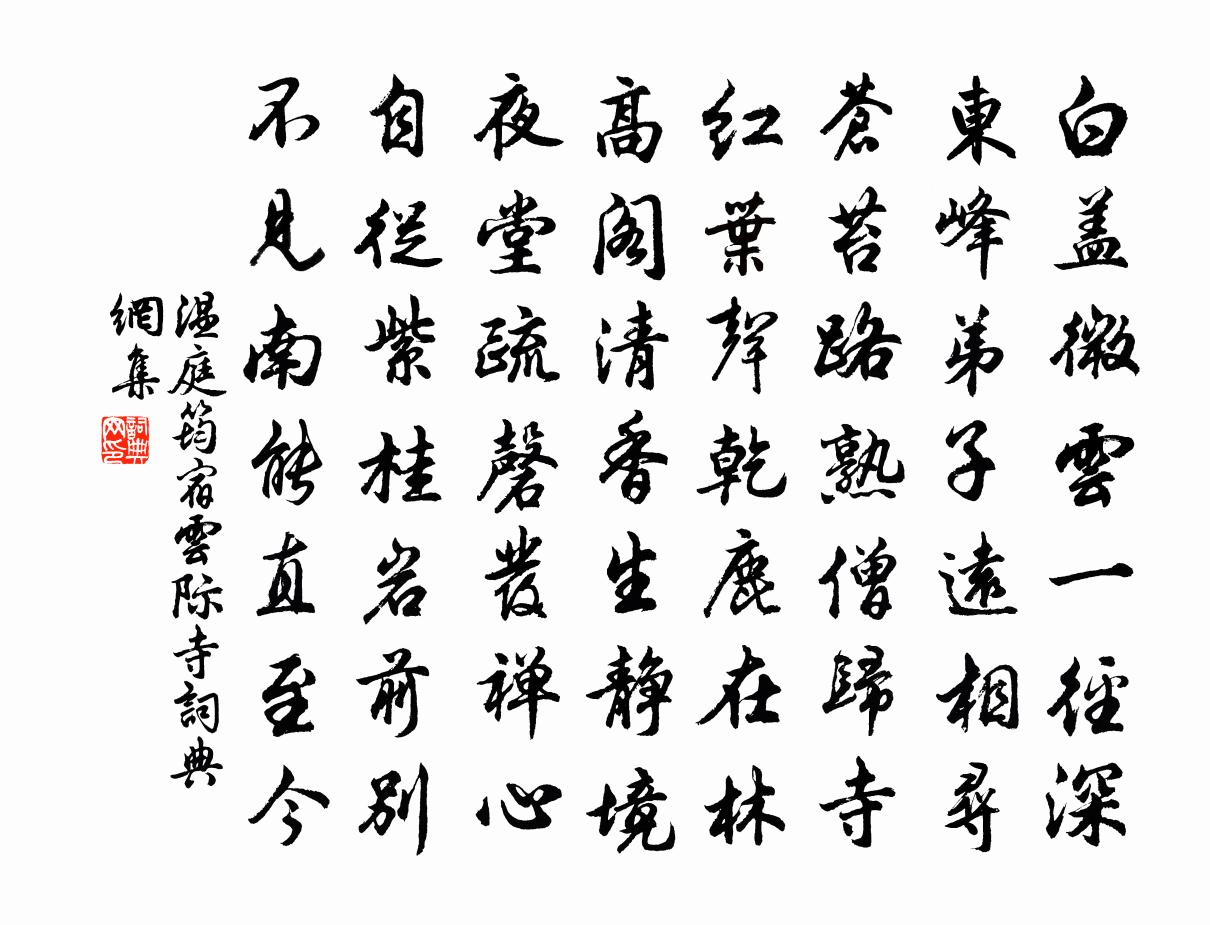 白盖微雲一徑深
東峰弟子遠相尋
蒼苔路熟僧歸寺
紅葉聲乾鹿在林
高閣清香生静境
夜堂疏磬發禅心
自從紫桂岩前别
不見南能直至今
温庭筠宿雲际寺詞典
網集
詞典
网印